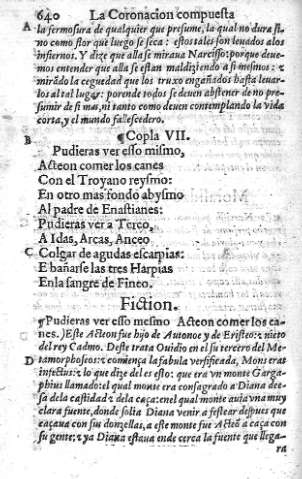 640 La Coronacion compuesta
A la fermosura de qualquier que presume, la qual no dura si
no como flor que luego se seca: estos tales son leuados a los
infiernos. Y dize que alla se miraua Narcisso: porque deue-
mos entender que alla se estan maldiziendo a si mesmos: z
mirãdo la ceguedad que los truxo engañados hasta leuar-
los al tal lugar: por ende todos se deuen abstener de no pre-
sumir de si mas, ni tanto como deuen contemplando la vida
corta, y el mundo fallescedero.
¶Copla VII.
B Pudieras ver esso mismo,
Acteon comer los canes
Con el Troyano reysmo:
En otro mas fondo abysmo
Al padre de Enastianes:
Pudieras ver a Tereo,
A Idas, Arcas, Anceo
C Colgar de agudas escarpias:
E bañarse las tres Harpias
En la sangre de Fineo.
Fiction.
¶Pudieras ver esso mesmo Acteon comer los ca-
nes.) Este Acteon fue hijo de Autonoy y de Eristeo: z nieto
del rey Cadmo. Deste trata Ouidio en el su tercero del Me-
D tamorphoseos: z comiença la fabula versificada, Mons erat
infectus: z lo que dize del es esto: que era vn monte Garga-
phius llamado: el qual monte era consagrado a Diana dee-
sa de la castidad z dela caça: en el qual monte auia vna muy
clara fuente, donde solia Diana venir a festear despues que
caçaua con sus donzellas, a este monte fue Acteõ a caça con
su gente: z ya Diana estaua ende cerca la fuente que llega-
ra